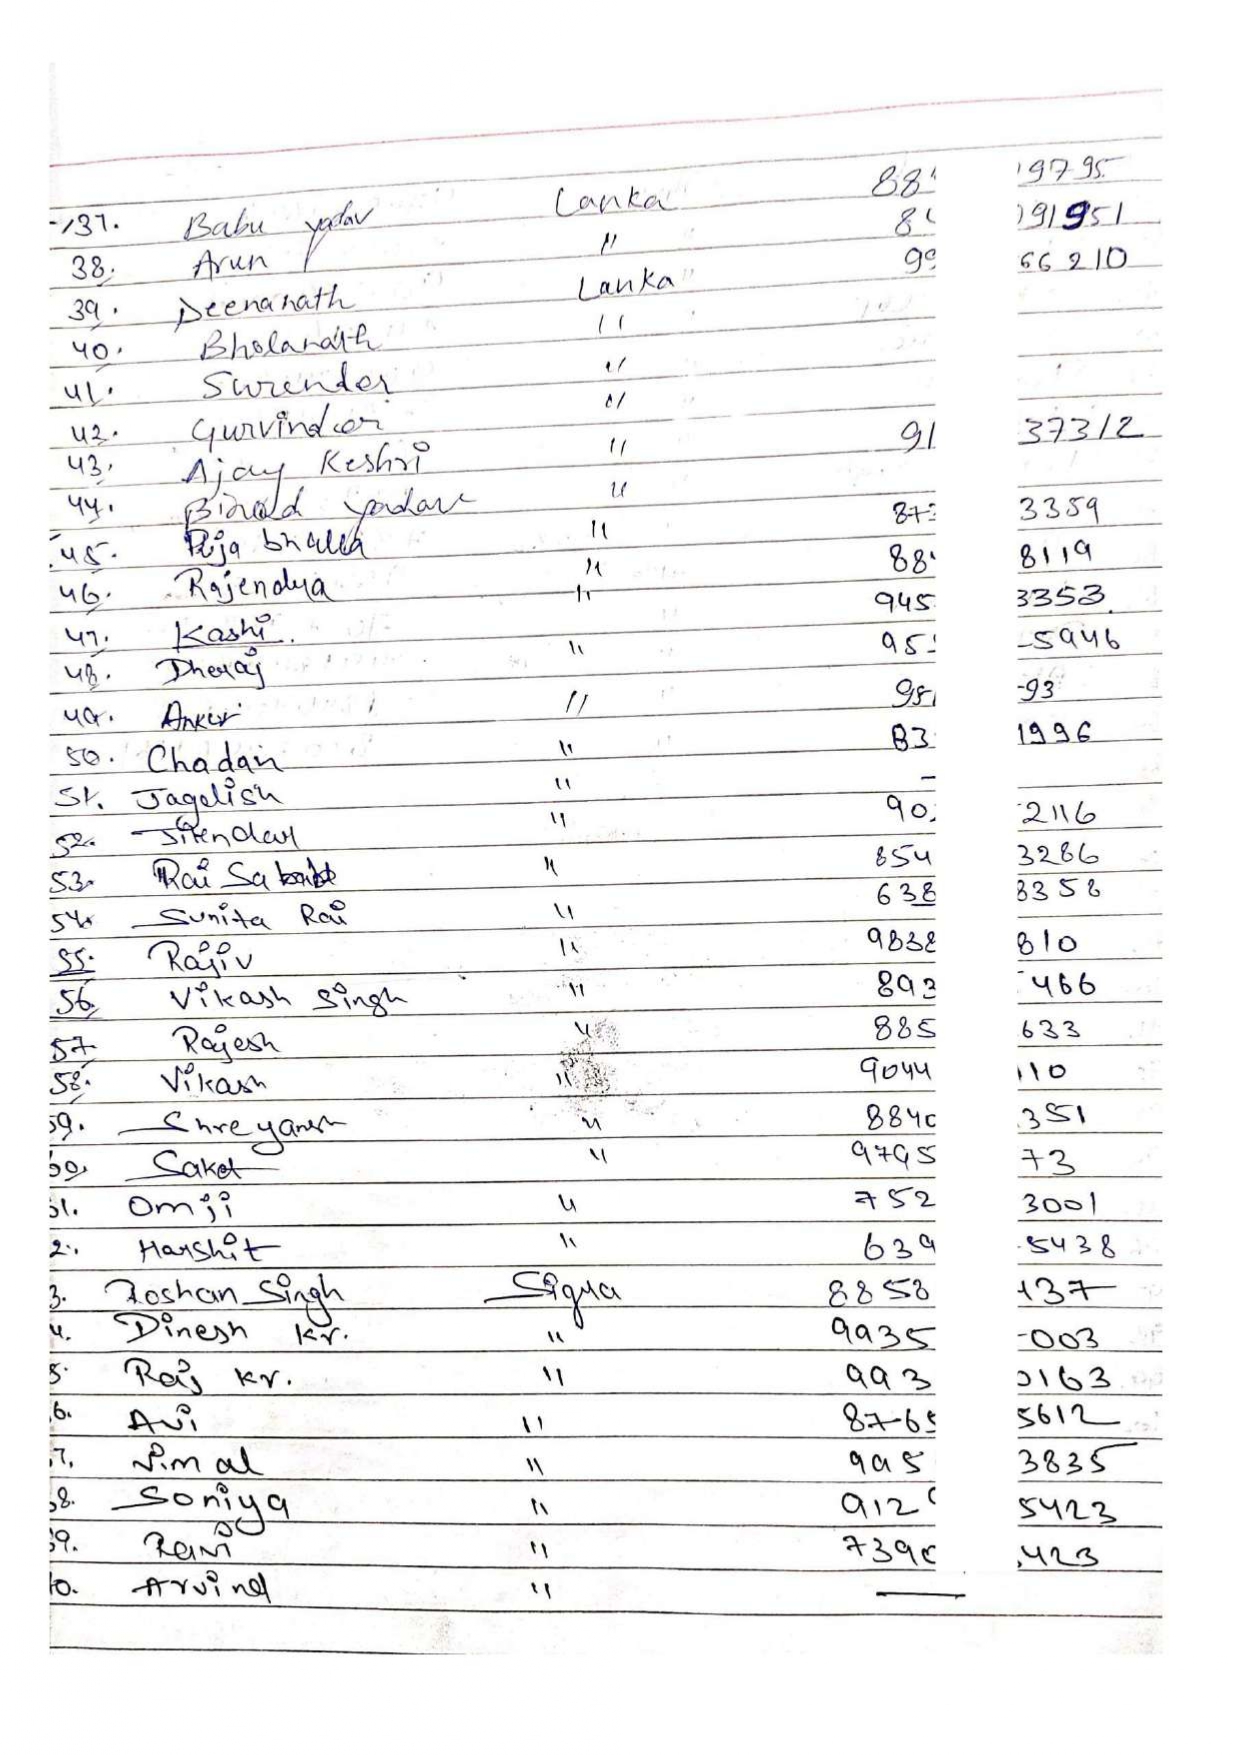 137. Babu yadav Lanka 88 19795
38. Arun " 8 91951
39. Deenanath Lanka 99 66210
40. Bholanath "
41. Surender "
42. Gurvinder "
43. Ajay Keshri " 91 37312
44. Binod yadav "
45. bhalla " 87 3359
46. Rajendra " 88 8119
47. Kashi " 945 3353
48. Dheraj " 95 5946
49. Anker " 98 93
50. Chadan " 83 1996
51. Jagdish " -
52. Jitendar " 90 2116
53. Rai " 854 3286
54. Sunita Rai " 638 8358
55. Rajiv " 9838 810
56. Vikash Singh " 893 466
57. Rajesh " 885 633
58. Vikash " 9044 110
59. Shreyansh " 884 351
60. Saket " 9795 73
61. Omji " 752 3001
2. Harshit " 639 5438
3. Roshan Singh Sigra 8858 137
4. Dinesh kr. " 9935 003
5. Raj kr. " 993 0163
6. Avi " 8765 5612
7. Vimal " 995 3835
8. Soniya " 912 5423
9. Ravi " 739 423
0. Arvind " —